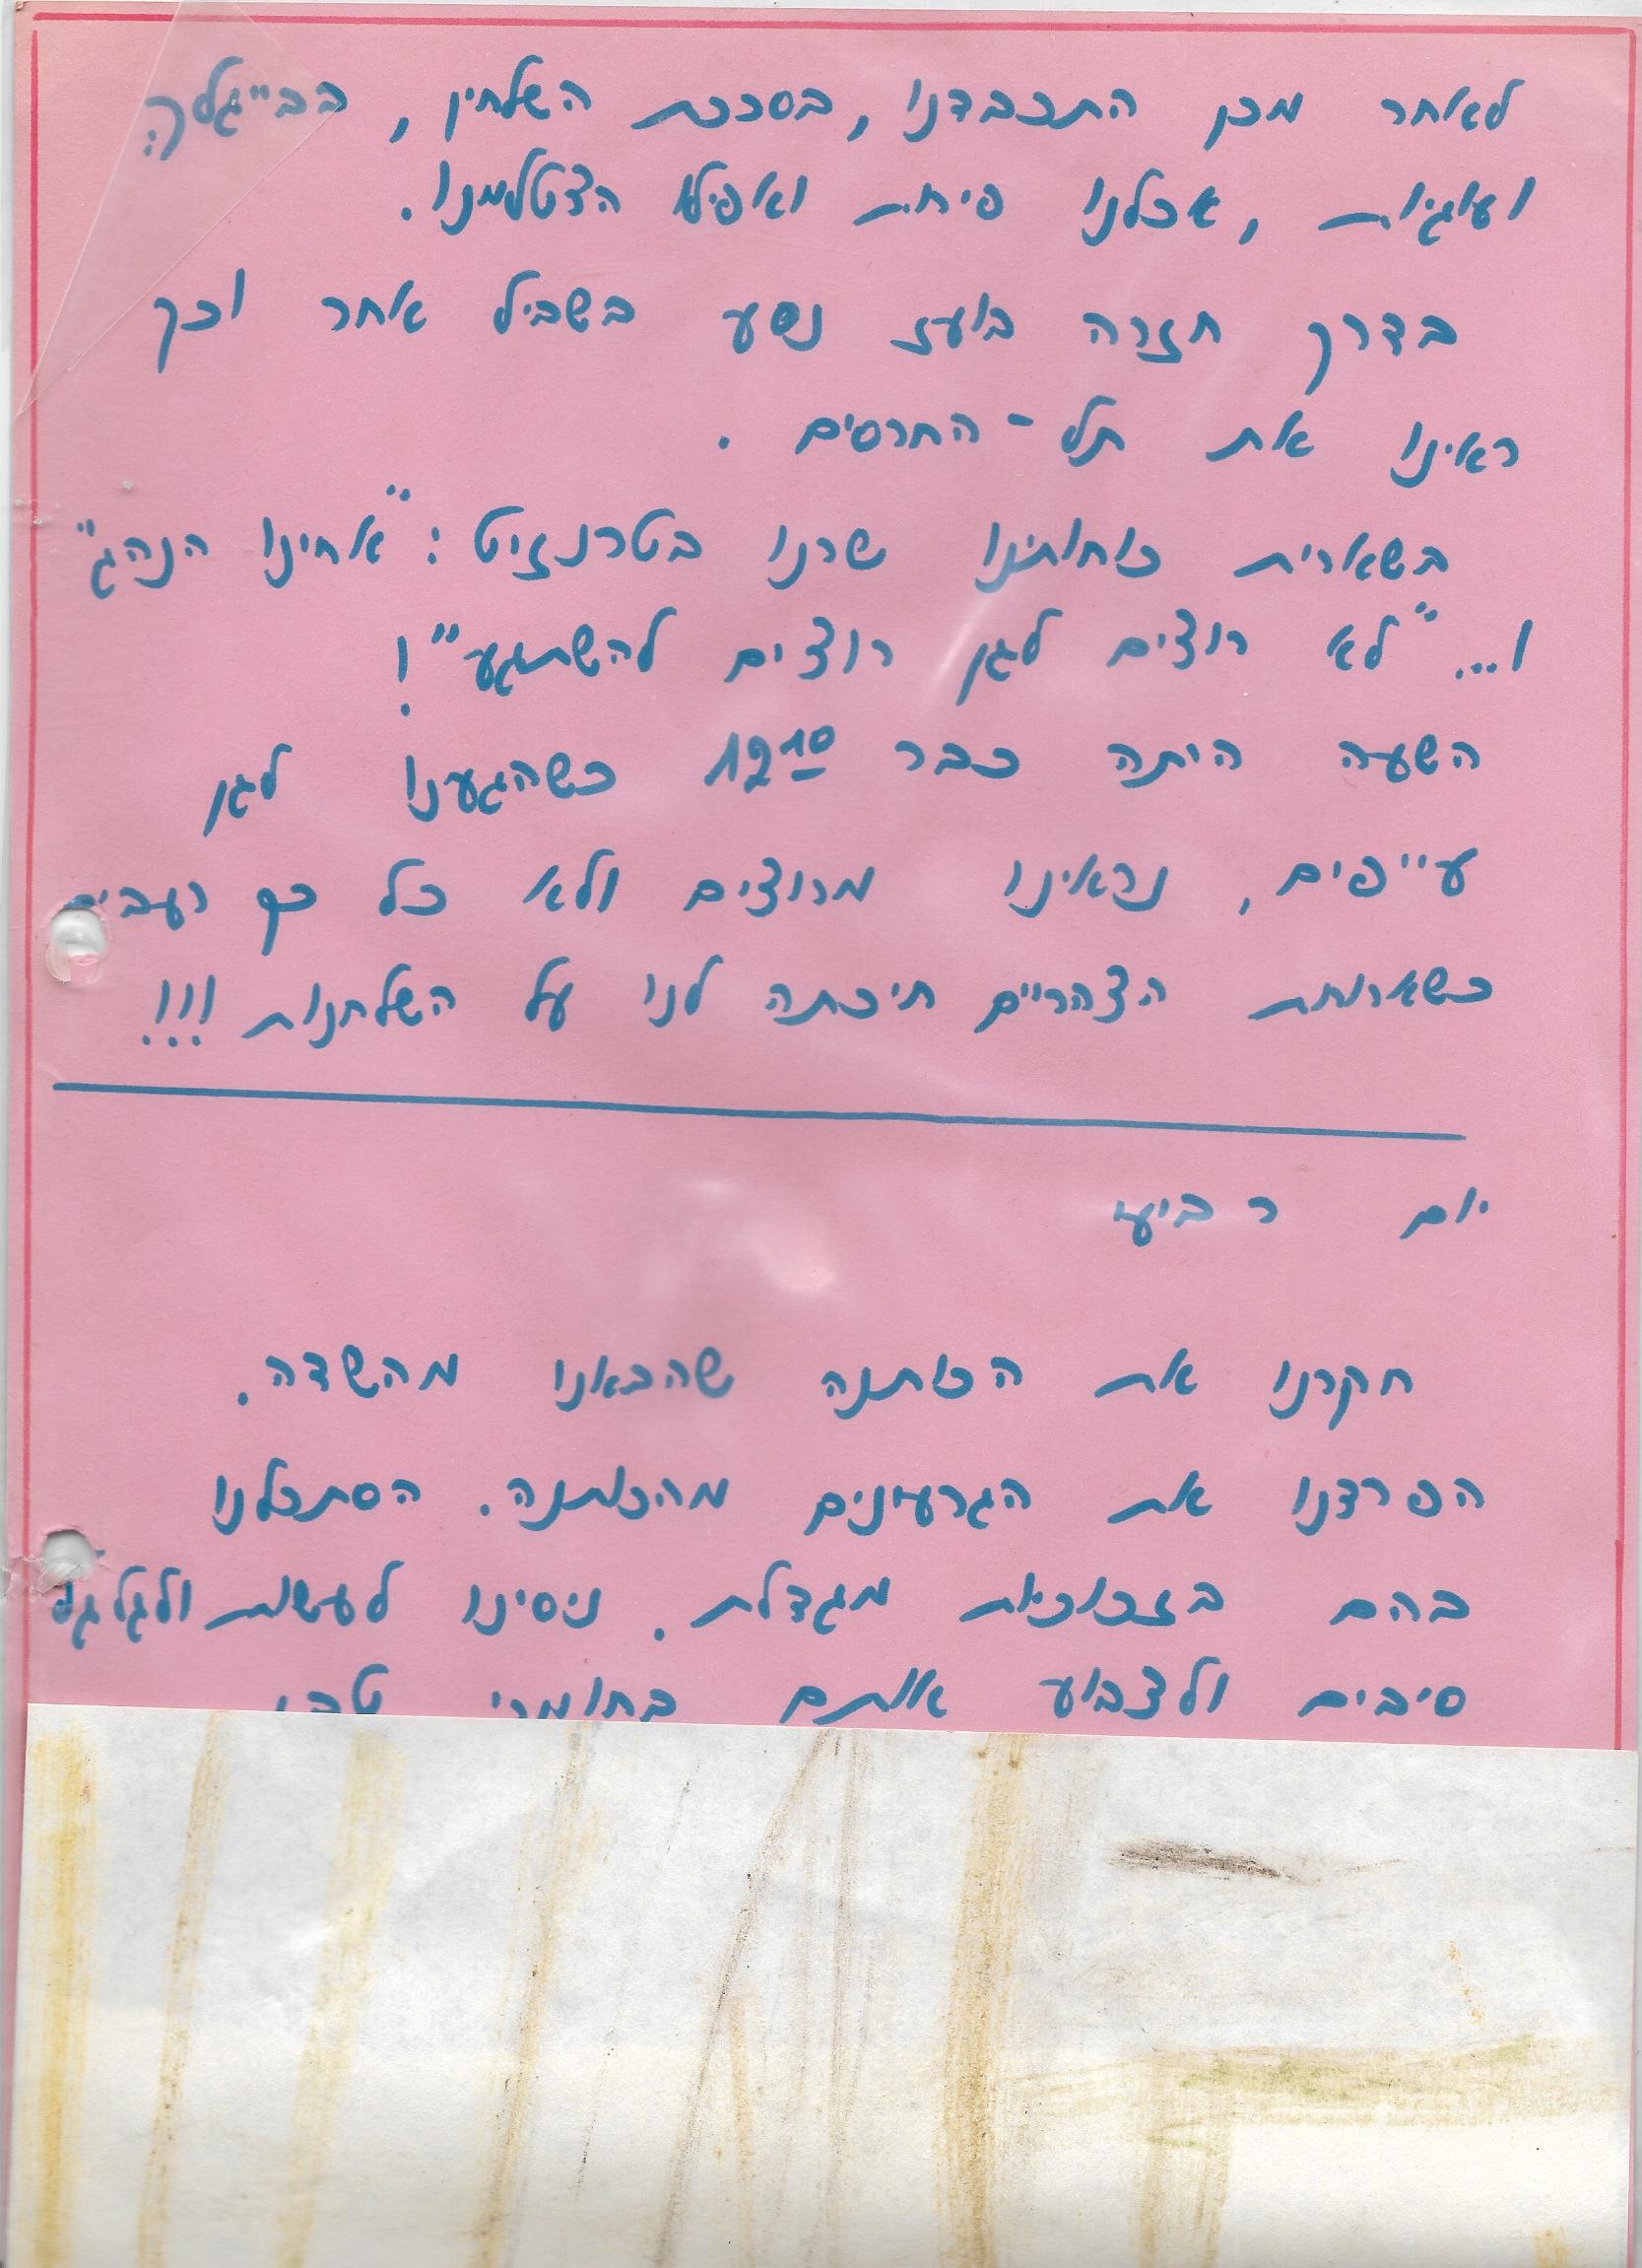 לאחר מכן התכבדנו, בסככת השלחין, בבייגלה
ועוגיות, אכלנו פירות ואפילו הצטלמנו.
בדרך חזרה בועז נסע בשביל אחר וכך
ראינו את תל-החרסים.
בשארית כוחותינו שרנו בטרנזיט: "אחינו הנהג"
ו... "לא רוצים לגן רוצים להשתגע"!
השעה היתה כבר 12<sup>10</sup> כשהגענו לגן
עייפים, נראינו מרוצים ולא כל כך רעבים
כשארוחת הצהריים חיכתה לנו על השלחנות!!!
יום רביעי
חקרנו את הכותנה שהבאנו מהשדה.
הפרדנו את הגרעינים מהכותנה. הסתכלנו
בהם בזכוכית מגדלת. ניסינו לעשות ולגלגל
סיבים ולצבוע אותם בחומרי טבע